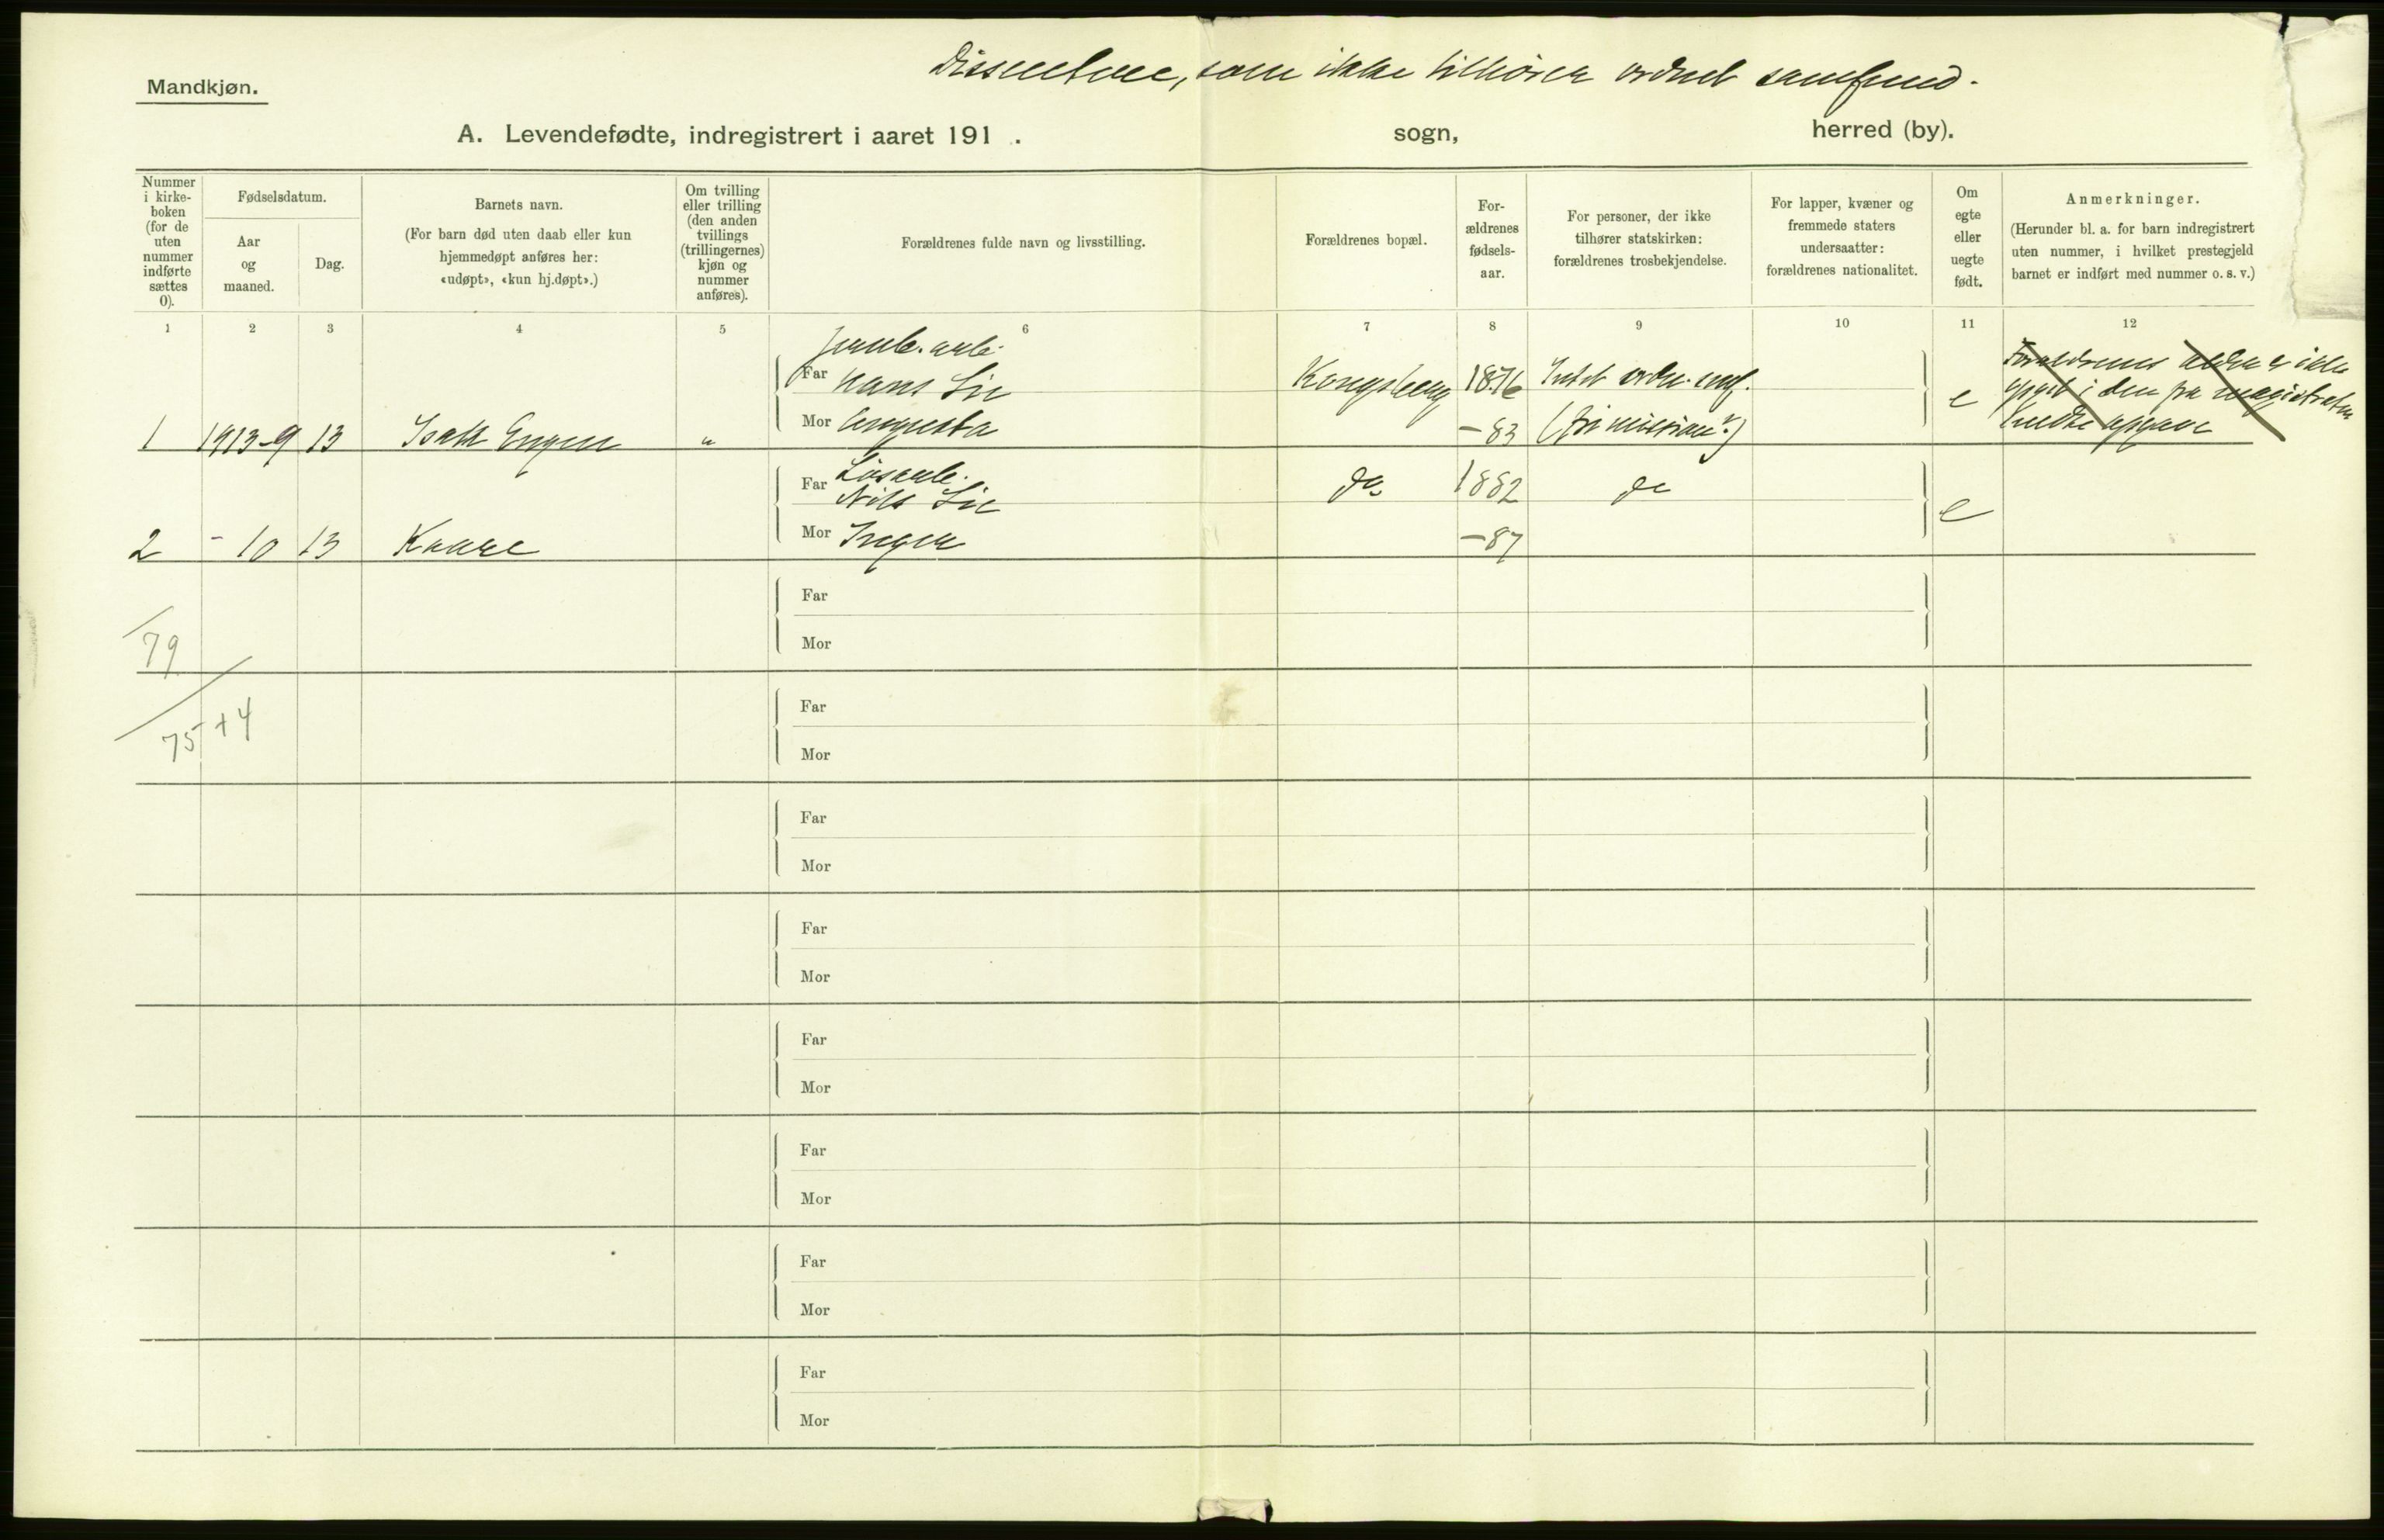 Dissentere, som ikke tilhører ordnet samfund.
Mandkjøn.
A. Levendefødte, indregistrert i aaret 191 . sogn, herred (by).
Nummer i kirke-boken (for de uten nummer indførte sættes 0).
Fødselsdatum.
Aar og maaned.
Dag.
Barnets navn.
(For barn død uten daab eller kun hjemmedøpt anføres her: «udøpt», «kun hj.døpt».)
Om tvilling eller trilling (den anden tvillings (trillingernes) kjøn og nummer anføres).
Forældrenes fulde navn og livsstilling.
Forældrenes bopæl.
For-ældrenes fødsels-aar.
For personer, der ikke tilhører statskirken: forældrenes trosbekjendelse.
For lapper, kvæner og fremmede staters undersaatter: forældrenes nationalitet.
Om egte eller uegte født.
Anmerkninger.
(Herunder bl. a. for barn indregistrert uten nummer, i hvilket prestegjeld barnet er indført med nummer o. s. v.)
1 2 3 4 5 6 7 8 9 10 11 12
Far Hans Lie Kongsberg 1876 Intet
Forældrenes alder er ikke
opgit i den fra magistraten
sendte opgave
Mor Augusta - 83 (fri mission?) e
1 1913-9 13 Isak Engen "
Løsarb.
Far Nils Lie do 1882 do
e
Mor Inga - 87
2 - 10 13 Kaare
Far
79
Mor
Far
75 + 4
Mor
Far
Mor
Far
Mor
Far
Mor
Far
Mor
Far
Mor
Far
Mor